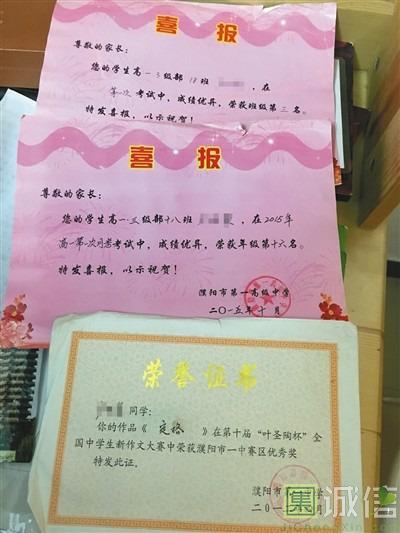 喜报
尊敬的家长：
您的学生高一·3级部18班，在
第一次考试中，成绩优异，荣获班级第三名。
特发喜报，以示祝贺！
喜报
尊敬的家长：
您的学生高一·三级部十八班，在2015年
高一第一次月考考试中，成绩优异，荣获年级第十六名。
特发喜报，以示祝贺！
濮阳市第一高级中学
二〇一五年十月
荣誉证书
同学：
你的作品《定格》在第十届“叶圣陶杯”全
国中学生新作文大赛中荣获濮阳市一中赛区优秀奖
特发此证。
濮阳市
二〇一
集诚信
JiChengXin.com